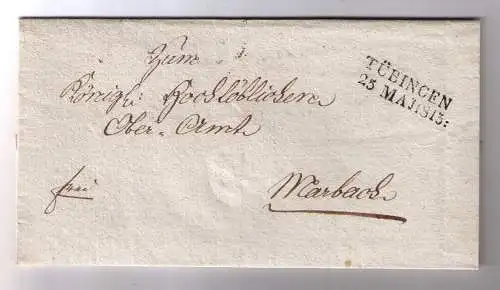 Zum
Königl: Hochlöblichen
Ober-Amt
TÜBINGEN
23 MAJ1813:
frei
Marbach